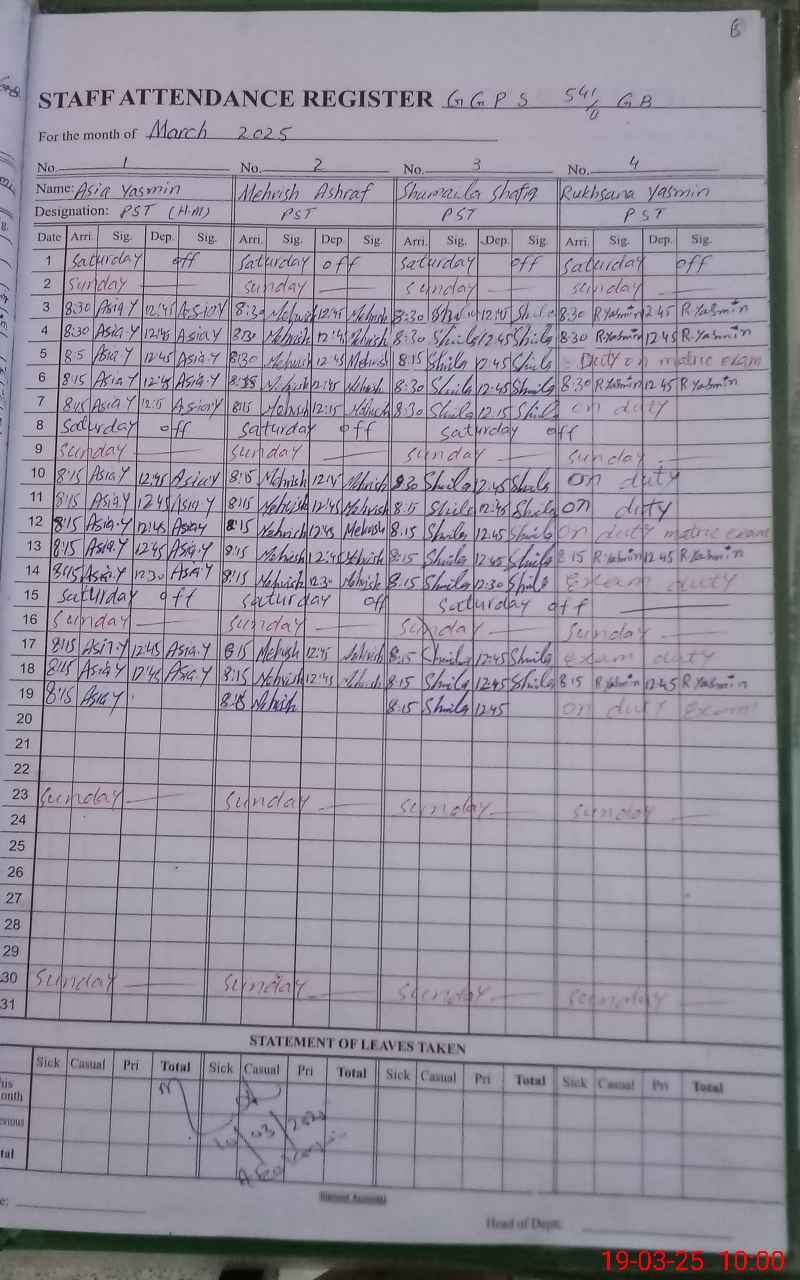 6
STAFF ATTENDANCE REGISTER G G P S 541/ GB
For the month of March 2025
No. 1 No. 2 No. 3 No. 4
Name: Asia Yasmin Mehrish Ashraf Shumaila Shafiq Rukhsana Yasmin
Designation: PST (H.M) PST PST PST
Date Arri. Sig. Dep. Sig. Arri. Sig. Dep. Sig. Arri. Sig. Dep. Sig. Arri. Sig. Dep. Sig.
1 Saturday off Saturday off Saturday off Saturday off
2 Sunday Sunday Sunday Sunday
3 8:30 Asia Y 12:45 Asia Y 8:30 Mehrish 12:45 Mehrish 8:30 Shaila 12:45 Shaila 8:30 R Yasmin 12:45 R Yasmin
4 8:30 Asia.Y 12:45 Asia Y 8:30 Mehrish 12:45 Mehrish 8:30 Shaila 12:45 Shaila 8:30 R.Yasmin 12 45 R.Yasmin
5 8:5 Asia Y 12:45 Asia.Y 8:30 Mehrish 12:45 Mehrish 8:15 Shaila 12:45 Shaila Duty on matric exam
6 8:15 Asia Y 12:45 Asia.Y 8:15 Mehrish 12:45 Mehrish 8:30 Shaila 12:45 Shaila 8:30 R Yasmin 12 45 R.Yasmin
7 8:15 Asia Y 12:15 Asia Y 8:15 Mehrish 12:15 Mehrish 8:30 Shaila 12:15 Shaila on duty
8 Saturday off Saturday off Saturday off
9 Sunday Sunday Sunday Sunday
10 8:15 Asia.Y 12:45 Asia Y 8:15 Mehrish 12:45 Mehrish 8:30 Shaila 12:45 Shaila on duty
11 8:15 Asia.Y 12 45 Asia.Y 8:15 Mehrish 12:45 Mehrish 8:15 Shaila 12:45 Shaila on duty
12 8:15 Asia.Y 12:45 Asia Y 8:15 Mehrish 12:45 Mehrish 8:15 Shaila 12:45 Shaila on duty matric exam
13 8:15 Asia.Y 12:45 Asia.Y 8:15 Mehrish 12:45 Mehrish 8:15 Shaila 12:45 Shaila 8 15 R Yasmin 12 45 R Yasmin
14 8:15 Asia.Y 12:30 Asia Y 8:15 Mehrish 12:30 Mehrish 8:15 Shaila 12:30 Shaila Exam duty
15 Saturday off Saturday off Saturday off
16 Sunday Sunday Sunday Sunday
17 8:15 Asia.Y 12:45 Asia.Y 8:15 Mehrish 12:45 Mehrish 8:15 Shaila 12:45 Shaila Exam duty
18 8:15 Asia Y 12:45 Asia.Y 8:15 Mehrish 12:45 Mehrish 8:15 Shaila 12:45 Shaila 8 15 R Yasmin 12 45 R Yasmin
19 8:15 Asia Y 8:15 Mehrish 8:15 Shaila 12:45 on duty Exam
20
21
22
23 Sunday Sunday Sunday Sunday
24
25
26
27
28
29
30 Sunday Sunday Sunday Sunday
31
STATEMENT OF LEAVES TAKEN
Sick Casual Pri Total Sick Casual Pri Total Sick Casual Pri Total Sick Casual Pri Total
Head of Deptt.
19-03-25 10:00